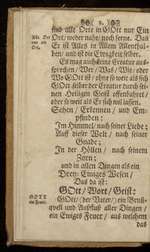 sind alle Orte in GOtt nur Ein
Ort/ weder nahe/ noch ferne. Das
Er ist Alles in Allem Allenthal-
ben/ und ist die Ewigkeit selber.
Es mag auch keine Creatur aus-
sprechen/ Wer/ Was/ Wie/ oder
Wo GOtt ist/ ohne so weit als sich
GOtt selber der Creatur durch sei-
nen Heiligen Geist offenbahret/
oder so weit als Er sich will lassen
Sehen/ Erkennen/ und Em-
pfinden:
Im Himmel/ nach seiner Liebe;
Auff dieser Welt/ nach seiner
Gnade;
In der Höllen/ nach seinem
Zorn;
und in allen Dingen als ein
Drey-Einiges Wesen/
Das ist:
GOtt/ Wort/ Geist:
GOTT
GOtt/ der Vater/ ein Brunn-
quell und Auffhalt aller Dingen/
ein Ewiges Feuer/ aus welchem
das